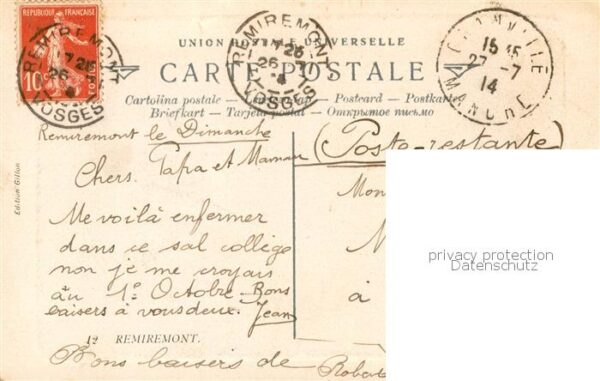 REPUBLIQUE FRANÇAISE
10c
REMIREMONT
26 -7
VOSGES
REMIREMONT
26 -7
VOSGES
15 45
27 -7
14
MANCHE
UNION POSTALE UNIVERSELLE
CARTE POSTALE
Cartolina postale — Postcard — Postkarte
Briefkart — Tarjeta postal — Открытое письмо
Edition Gillon
Remiremont le Dimanche
Chers Papa et Maman
Me voilà enfermer
dans ce sal collège
non je me croyais
au 1er Octobre - Bons
baisers à vous deux. Jean
12 REMIREMONT.
Bons baisers de Robert
(Poste-restante)
Mon
M
à
privacy protection
Datenschutz